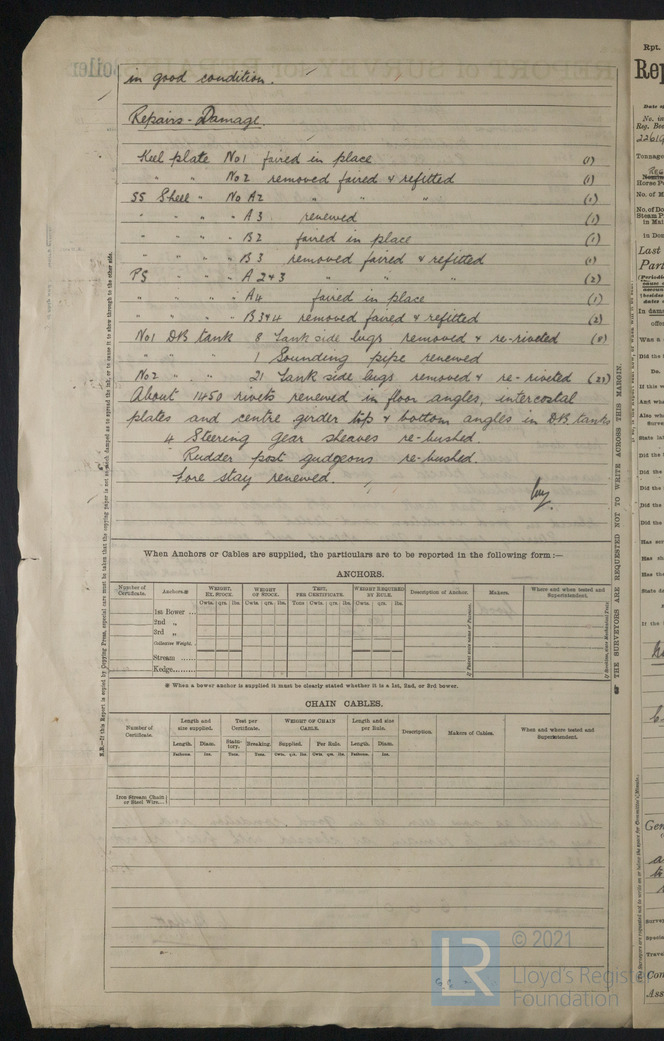 in good condition.
Repairs - Damage.
Keel plate No1 faired in place (1)
" " No2 removed faired & refitted (1)
SS Shell " No A2 " " " (1)
" " " " A3 renewed (1)
" " " " B2 faired in place (1)
" " " " B3 removed faired & refitted (1)
PS " " " A 2&3 " " " (2)
" " " " A4 faired in place (1)
" " " " B3&4 removed faired & refitted (2)
No1 DB tank 8 Tank side lugs removed & re-riveted (8)
" " " 1 Sounding pipe renewed
No2 " " 21 Tank side lugs removed & re-riveted
About 1450 rivets renewed in floor angles, intercostal
plates and centre girder top & bottom angles in DB tanks
4 Steering gear sheaves re-bushed.
Rudder post gudgeons re-bushed.
Fore stay renewed.
When Anchors or Cables are supplied, the particulars are to be reported in the following form:—
ANCHORS.
Number of Certificate. Anchors.* WEIGHT, EX. STOCK. WEIGHT OF STOCK. TEST, PER CERTIFICATE. WEIGHT REQUIRED BY RULE. Description of Anchor. Makers. Where and when tested and Superintendent.
Cwts. qrs. lbs. Cwts. qrs. lbs. Tons Cwts. qrs. lbs. Cwts. qrs. lbs.
1st Bower ...
2nd "
3rd "
Collective Weight.
Stream
Kedge
* When a bower anchor is supplied it must be clearly stated whether it is a 1st, 2nd, or 3rd bower.
CHAIN CABLES.
Number of Certificate. Length and size supplied. Test per Certificate. WEIGHT OF CHAIN CABLE. Length and size per Rule. Description. Makers of Cables. When and where tested and Superintendent.
Length. Diam. Statutory. Breaking. Supplied. Per Rule. Length. Diam.
Fathoms. Ins. Tons. Tons. Cwts. qrs. lbs. Cwts. qrs. lbs. Fathoms. Ins.
Iron Stream Chain or Steel Wire...
N.B.—If this Report is copied by Copying Press, especial care must be taken that the copying paper is not so much damped as to spread the ink, or to cause it to show through to the other side.
THE SURVEYORS ARE REQUESTED NOT TO WRITE ACROSS THIS MARGIN.
Rpt.
Rep
LR
© 2021
Lloyd's Register
Foundation